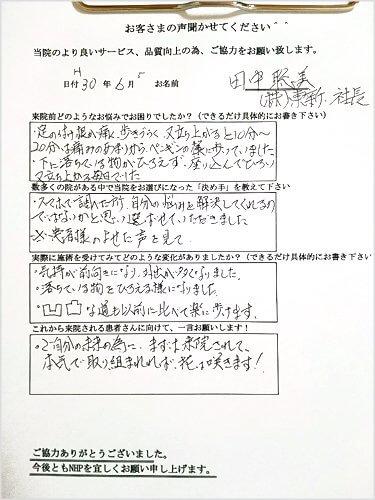 お客さまの声聞かせてください^^
当院のより良いサービス、品質向上の為、ご協力をお願い致します。
H
日付 30年 6月 5 お名前 田中聡美
(株)東新 社長
来院前どのようなお悩みでお困りでしたか？(できるだけ具体的にお書き下さい)
・足の付け根が痛く歩きづらく、又立ち上がると10分〜
20分は痛みのあまりからペンギンの様に歩っていました
・下に落ちている物がひろえず、座り込んでひろい
又立ち上がる毎日でした
数多くの院がある中で当院をお選びになった「決め手」を教えて下さい
・スマホで調れた所、自分の悩みを解決してくれるの
ではないかと思い選ばせていただきました
※患者様のよせた声を見て
実際に施術を受けてみてどのような変化がありましたか？(できるだけ具体的にお書き下
・気持が前向きになり、外出が多くなりました。
・落ちている物をひろえる様になりました。
・凹凸な道も以前に比べて楽に歩けます。
これから来院される患者さんに向けて、一言お願いします！
・ご自分の未来の為に、まずは来院されて、
本気で取り組まれれば、花は咲きます！
ご協力ありがとうございました。
今後ともNHPを宜しくお願い申し上げます。